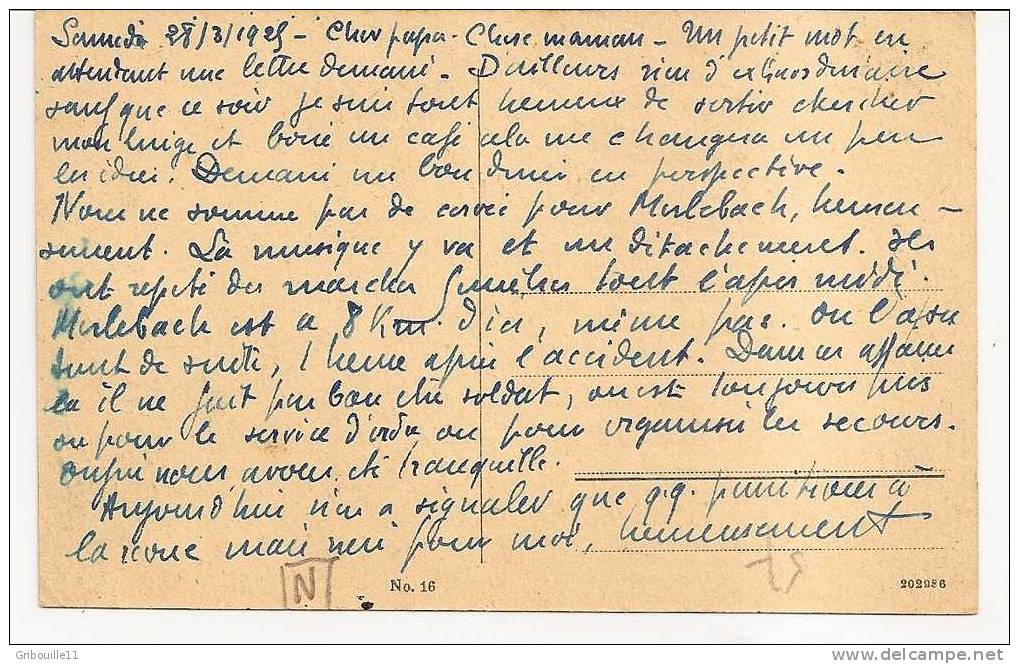 Samedi 28/3/1925 - Cher papa - Chere maman - Un petit mot en
attendant une lettre demani - D'ailleurs rien d'extraordinaire
sauf que ce soir je suis tout heureux de sortir chercher
mon linge et boire un café cela me changera un peu
les idées. Demani un bon diner en perspective.
Nous ne somme pas de corvée pour Merlebach, heureu-
sement. La musique y va et un détachement. Ils
ont repeté des marches funèbres tout l'après midi.
Merlebach est a 8 Km. d'ici, même pas. On l'a su
tout de suite, 1 heure après l'accident. Dans ces affaires
la il ne fait pas bon etre soldat, on est toujours pris
ou pour le service d'ordre ou pour organiser les secours.
enfin nous avons été tranquille.
Aujourd'hui rien a signaler que q.q. punitions à
la revue mais rien pour moi, heureusement
N
No. 16
202986
Gribouille11
www.delcampe.net